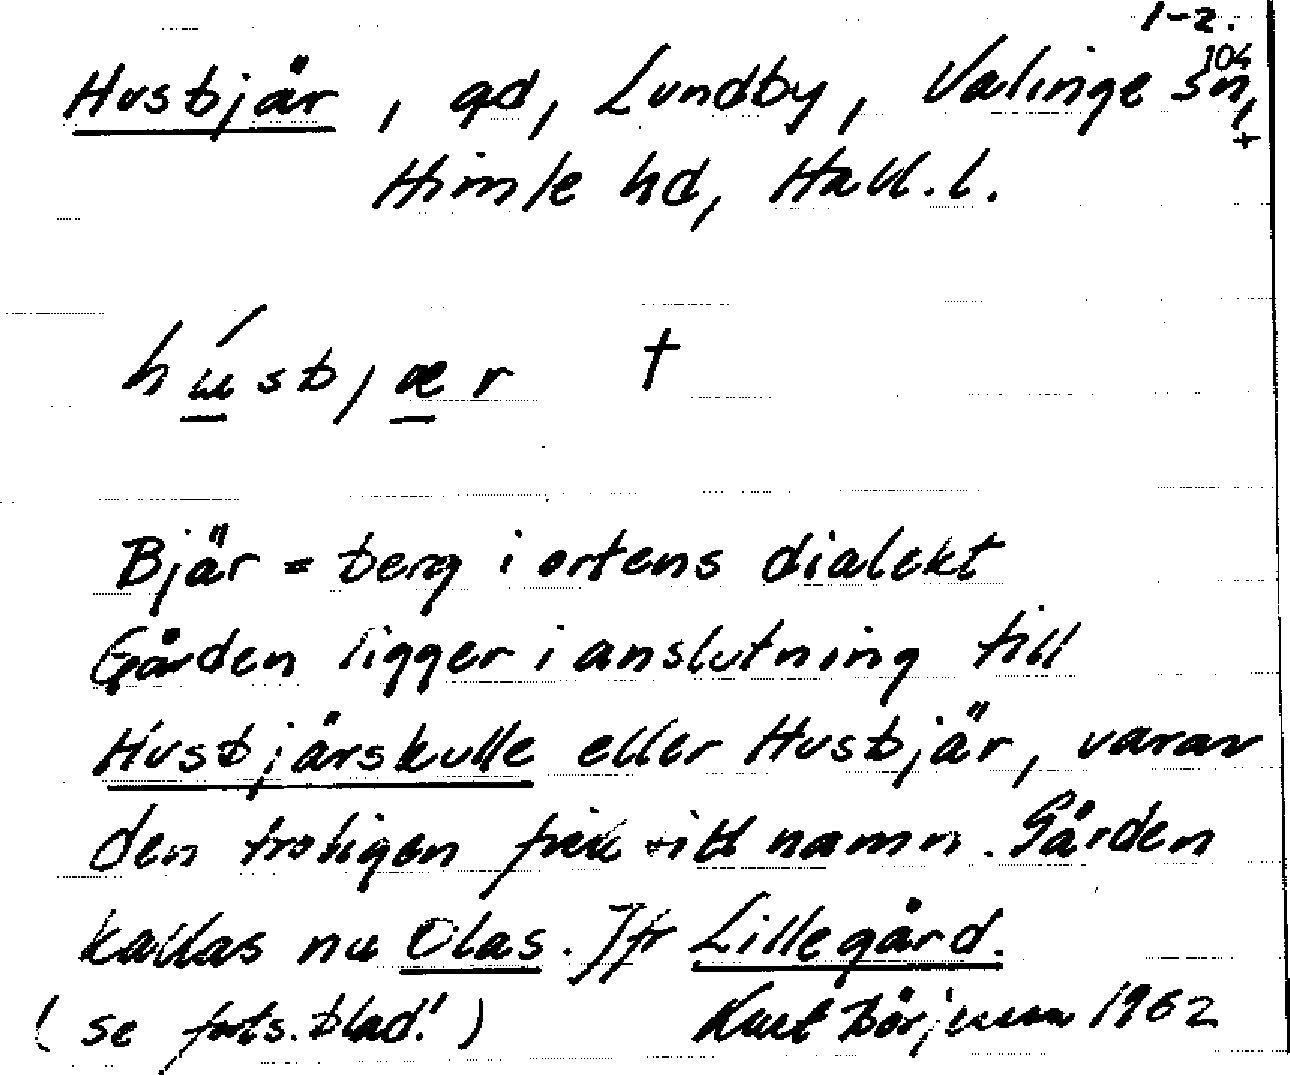 1-2.
104
Husbjär, gd, Lundby, Valinge sn, +
Himle hd, Hall. l.
húsbjær †
Bjär = berg i ortens dialekt
Gården ligger i anslutning till
Husbjärskulle eller Husbjär, varav
den troligen fick sitt namn. Gården
kallas nu Olas. Jfr Lillegård.
(se forts. blad!)
Kurt 1962